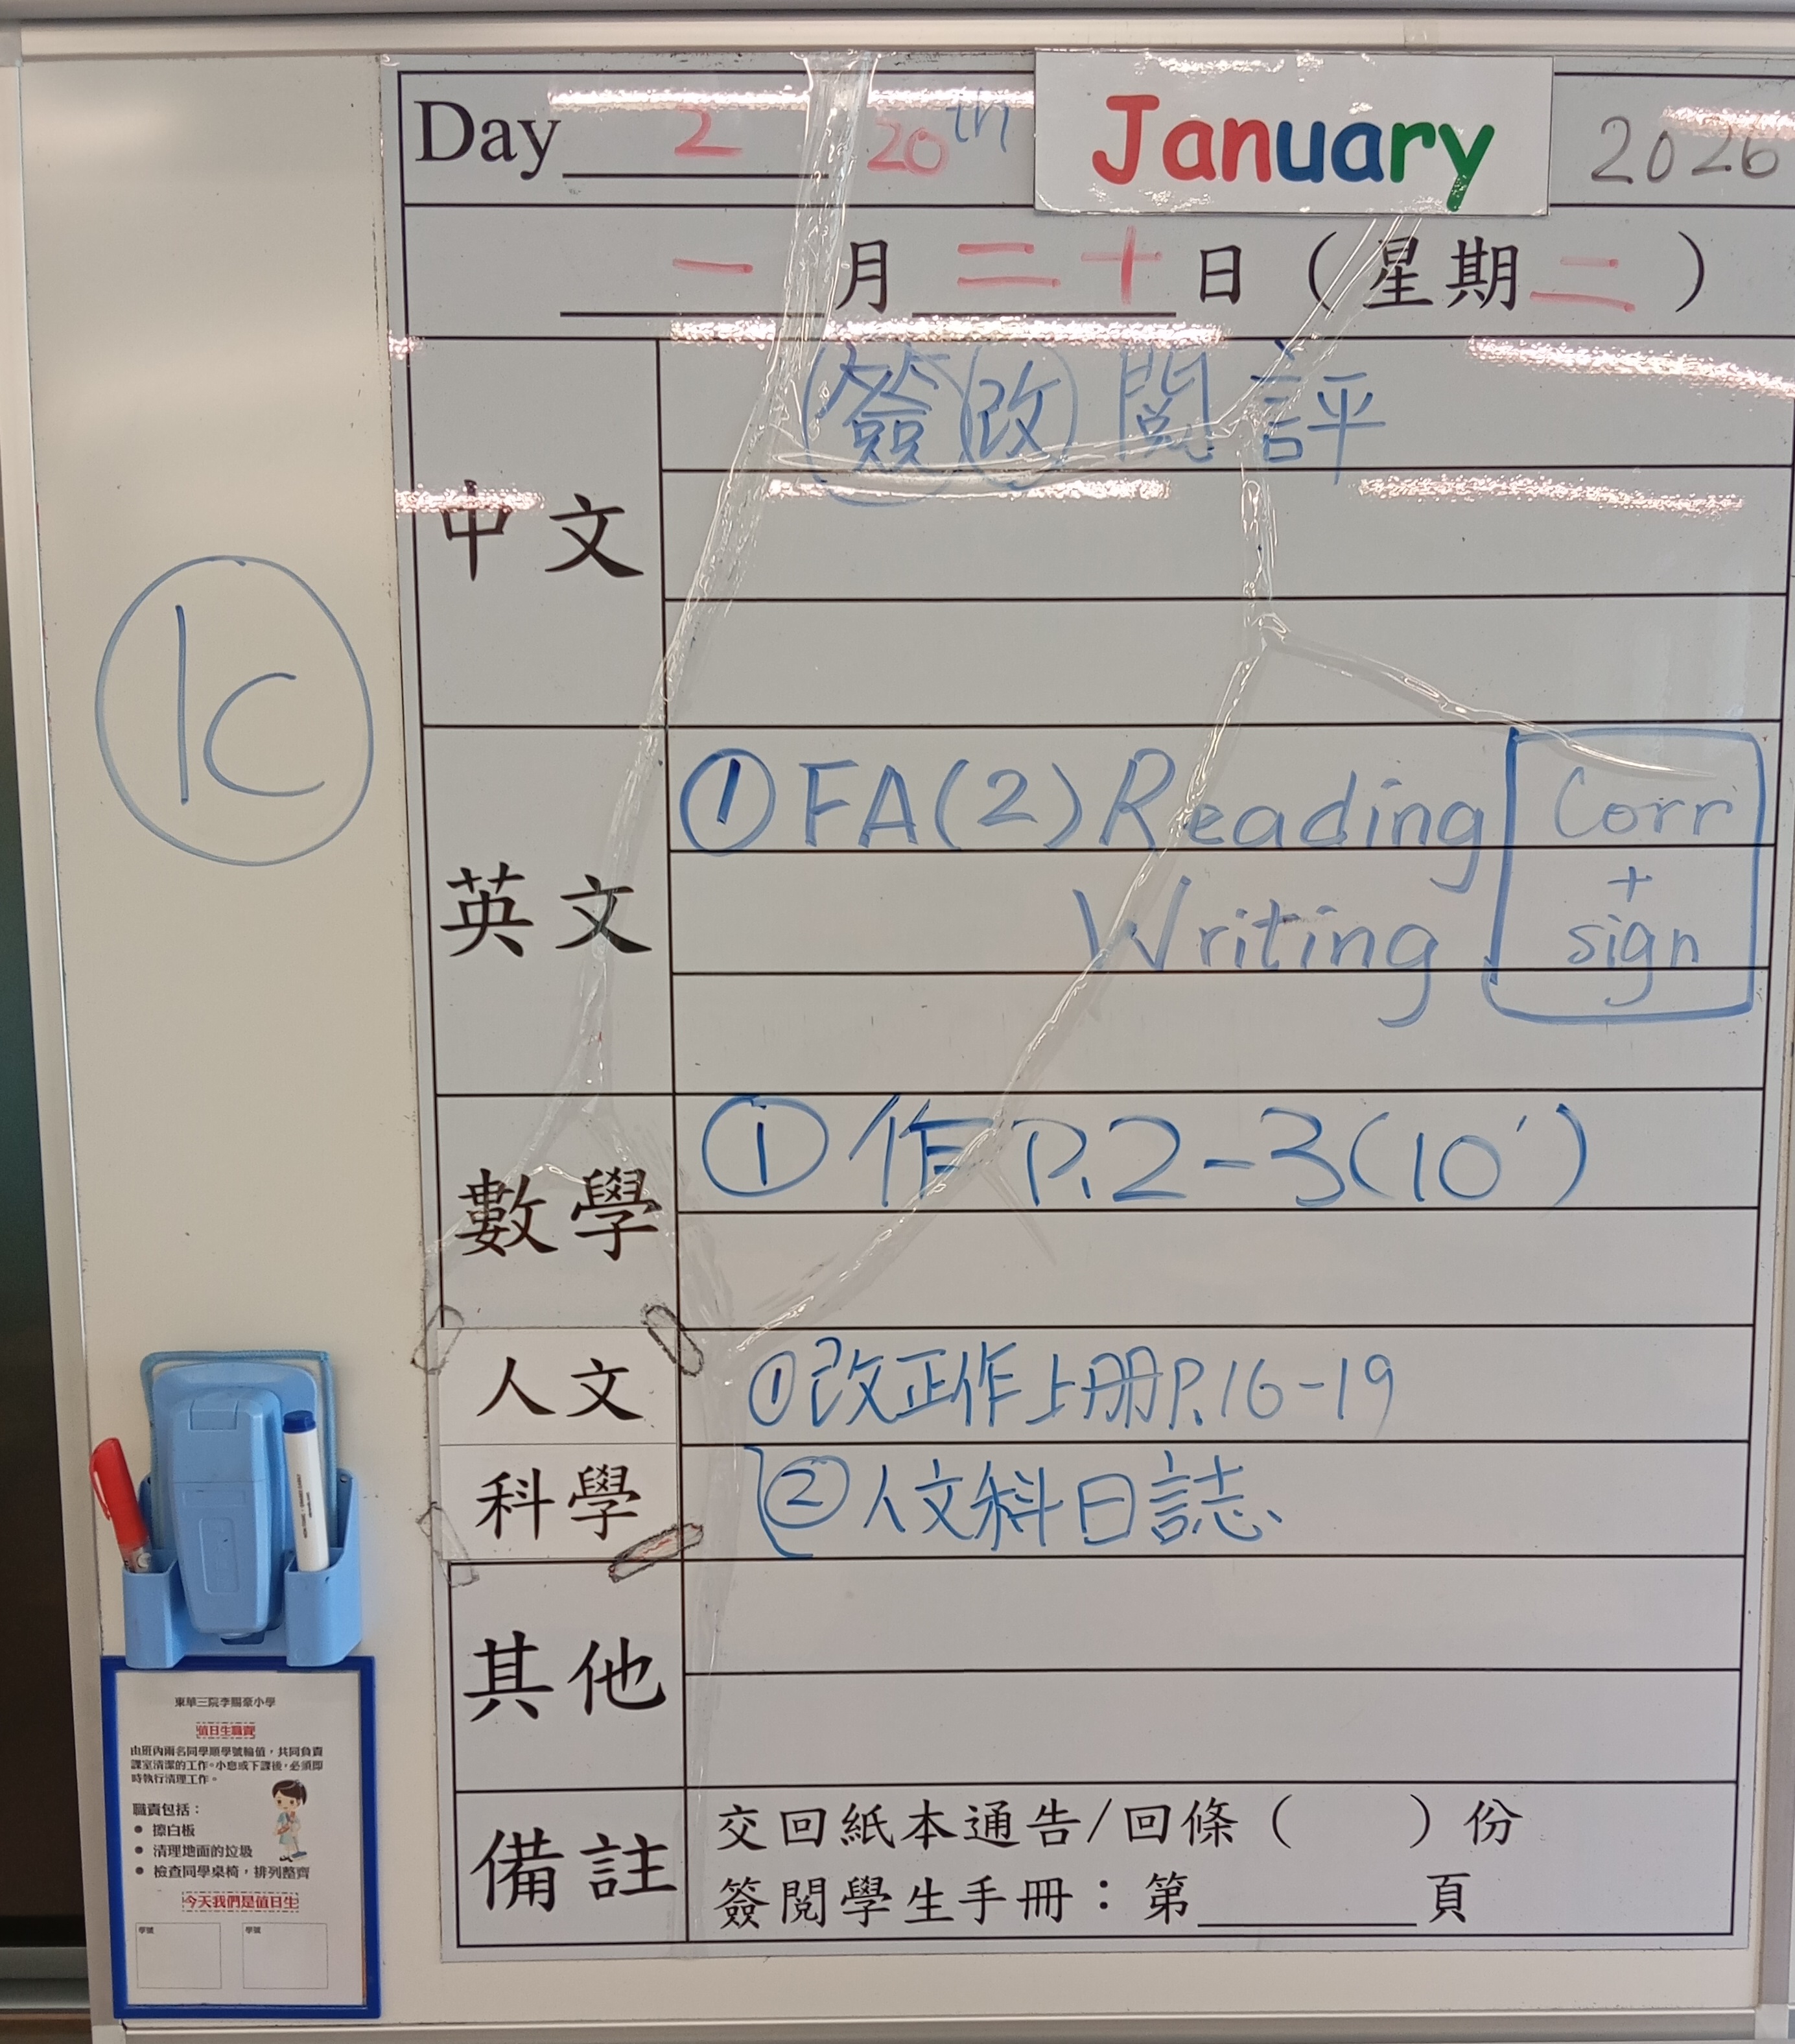 Day 2 20th January 2026
一月二十日(星期二)
中文
簽 改 閱 評
1C
英文
① FA(2) Reading
Writing
Corr
+
sign
數學
① 作 P.2-3(10')
人文
科學
① 改正作上冊P.16-19
② 人文科日誌
其他
備註
交回紙本通告/回條( )份
簽閱學生手冊:第______頁
東華三院李賜豪小學
值日生職責
由班內兩名同學順學號輪值,共同負責
課室清潔的工作。小息或下課後,必須即
時執行清理工作。
職責包括:
● 擦白板
● 清理地面的垃圾
● 檢查同學桌椅,排列整齊
今天我們是值日生
學號 學號